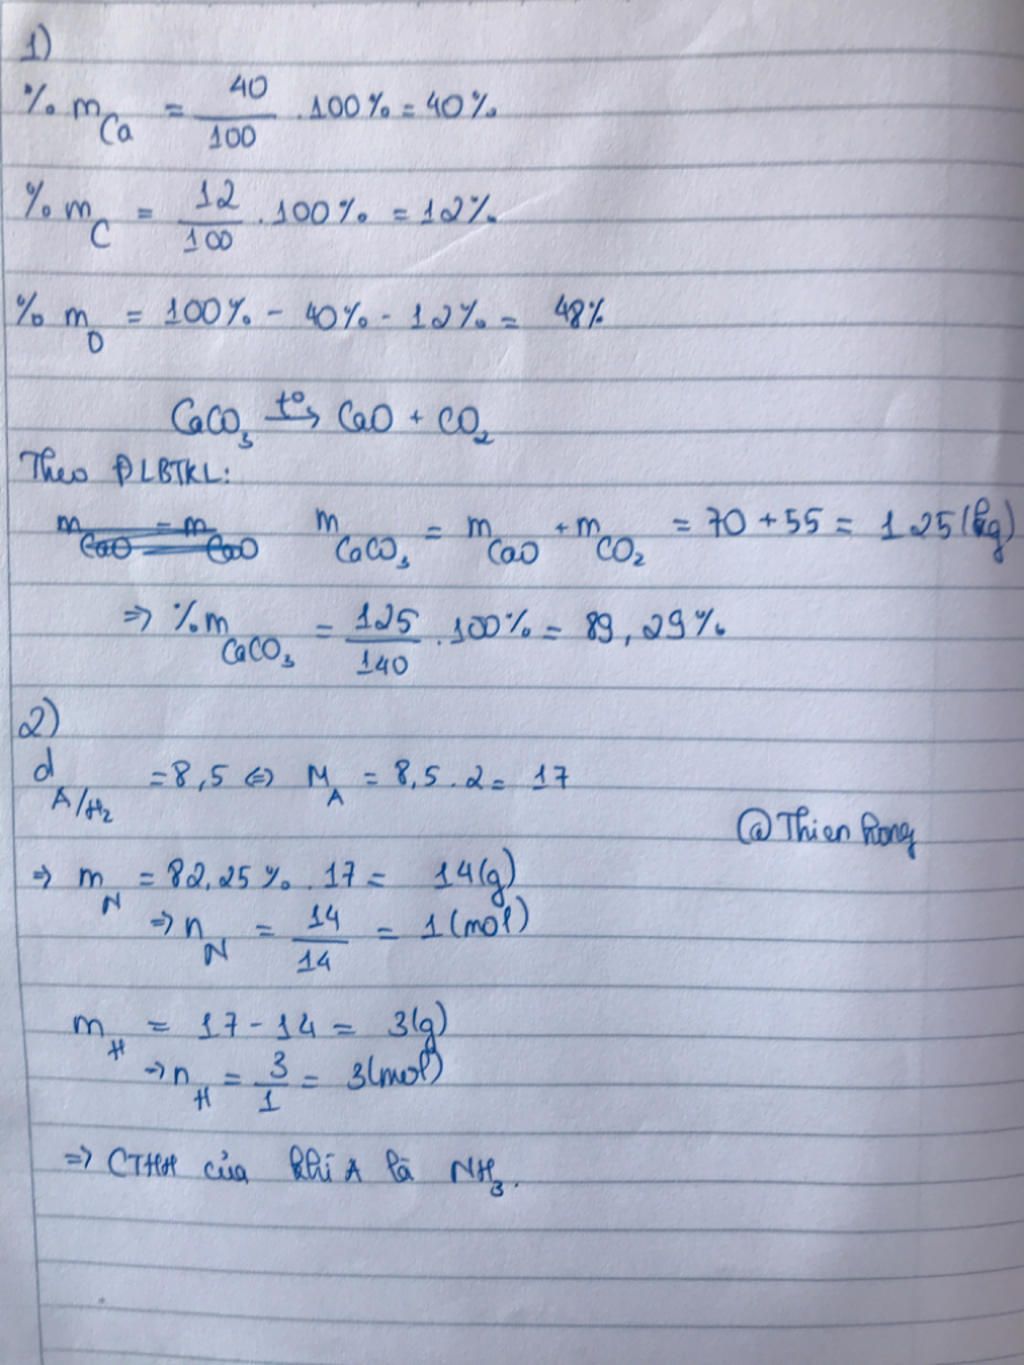 1)
% m_Ca = 40/100 . 100% = 40%
% m_C = 12/100 . 100% = 12%
% m_O = 100% - 40% - 12% = 48%
CaCO₃ t°→ CaO + CO₂
Theo ĐLBTKL:
m_CaO = m_CaO m_CaCO₃ = m_CaO + m_CO₂ = 70 + 55 = 125 (kg)
⇒ % m_CaCO₃ = 125/140 . 100% = 89,29%
2)
d_A/H₂ = 8,5 ⇔ M_A = 8,5 . 2 = 17
@Thien Phong
⇒ m_N = 82,25% . 17 = 14(g)
⇒ n_N = 14/14 = 1 (mol)
m_H = 17 - 14 = 3(g)
⇒ n_H = 3/1 = 3(mol)
⇒ CTHH của khí A là NH₃.